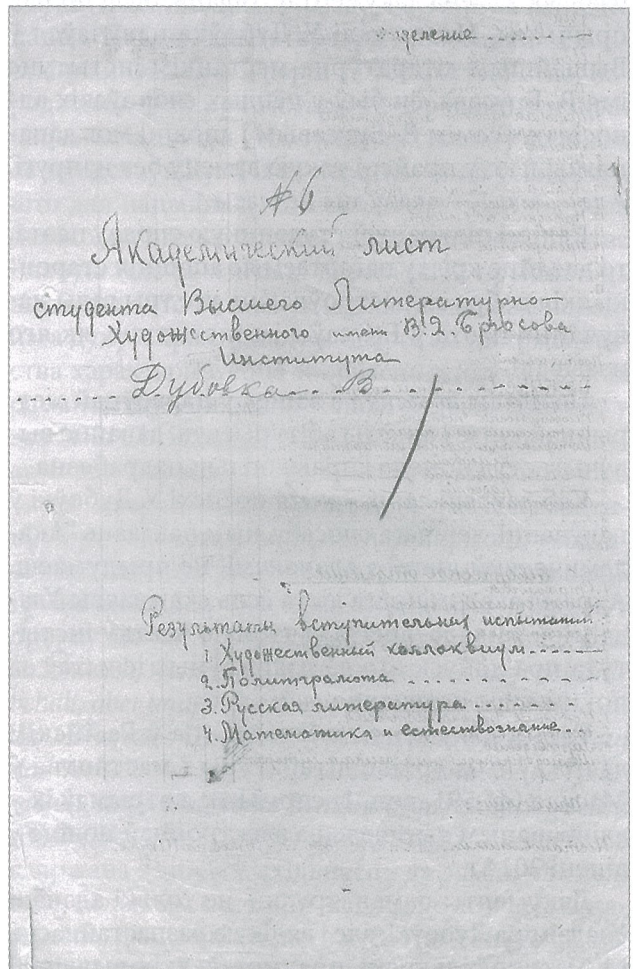 деление
№ 6
Академический лист
студента Высшего Литературно-
Художественного имени В.Я. Брюсова
Института
Дубовка В
Результаты вступительных испытаний
1. Художественный коллоквиум
2. Политграмота
3. Русская литература
4. Математика и естествознание